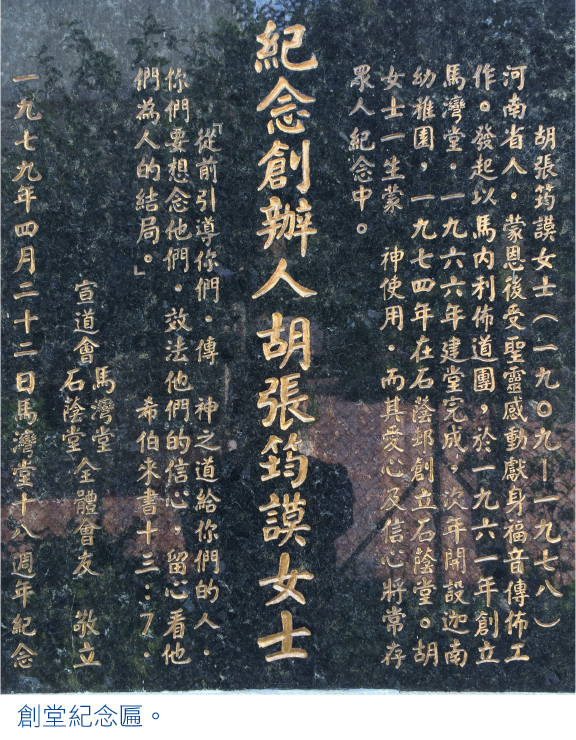 胡張筠謨女士（一九〇九—一九七八）
河南省人。蒙恩後受聖靈感動獻身福音傳佈工
作。發起以馬內利佈道團，於一九六一年創立
馬灣堂．一九六六年建堂完成，次年開設迦南
幼稚園，一九七四年在石蔭邨創立石蔭堂。胡
女士一生蒙　神使用．而其愛心及信心將常存
眾人紀念中。
紀念創辦人胡張筠謨女士
「從前引導你們．傳　神之道給你們的人．
你們要想念他們．效法他們的信心，留心看他
們為人的結局。」　希伯來書十三：7．
宣道會 馬灣堂 石蔭堂 全體會友　敬立
一九七九年四月二十二日馬灣堂十八週年紀念
創堂紀念匾。